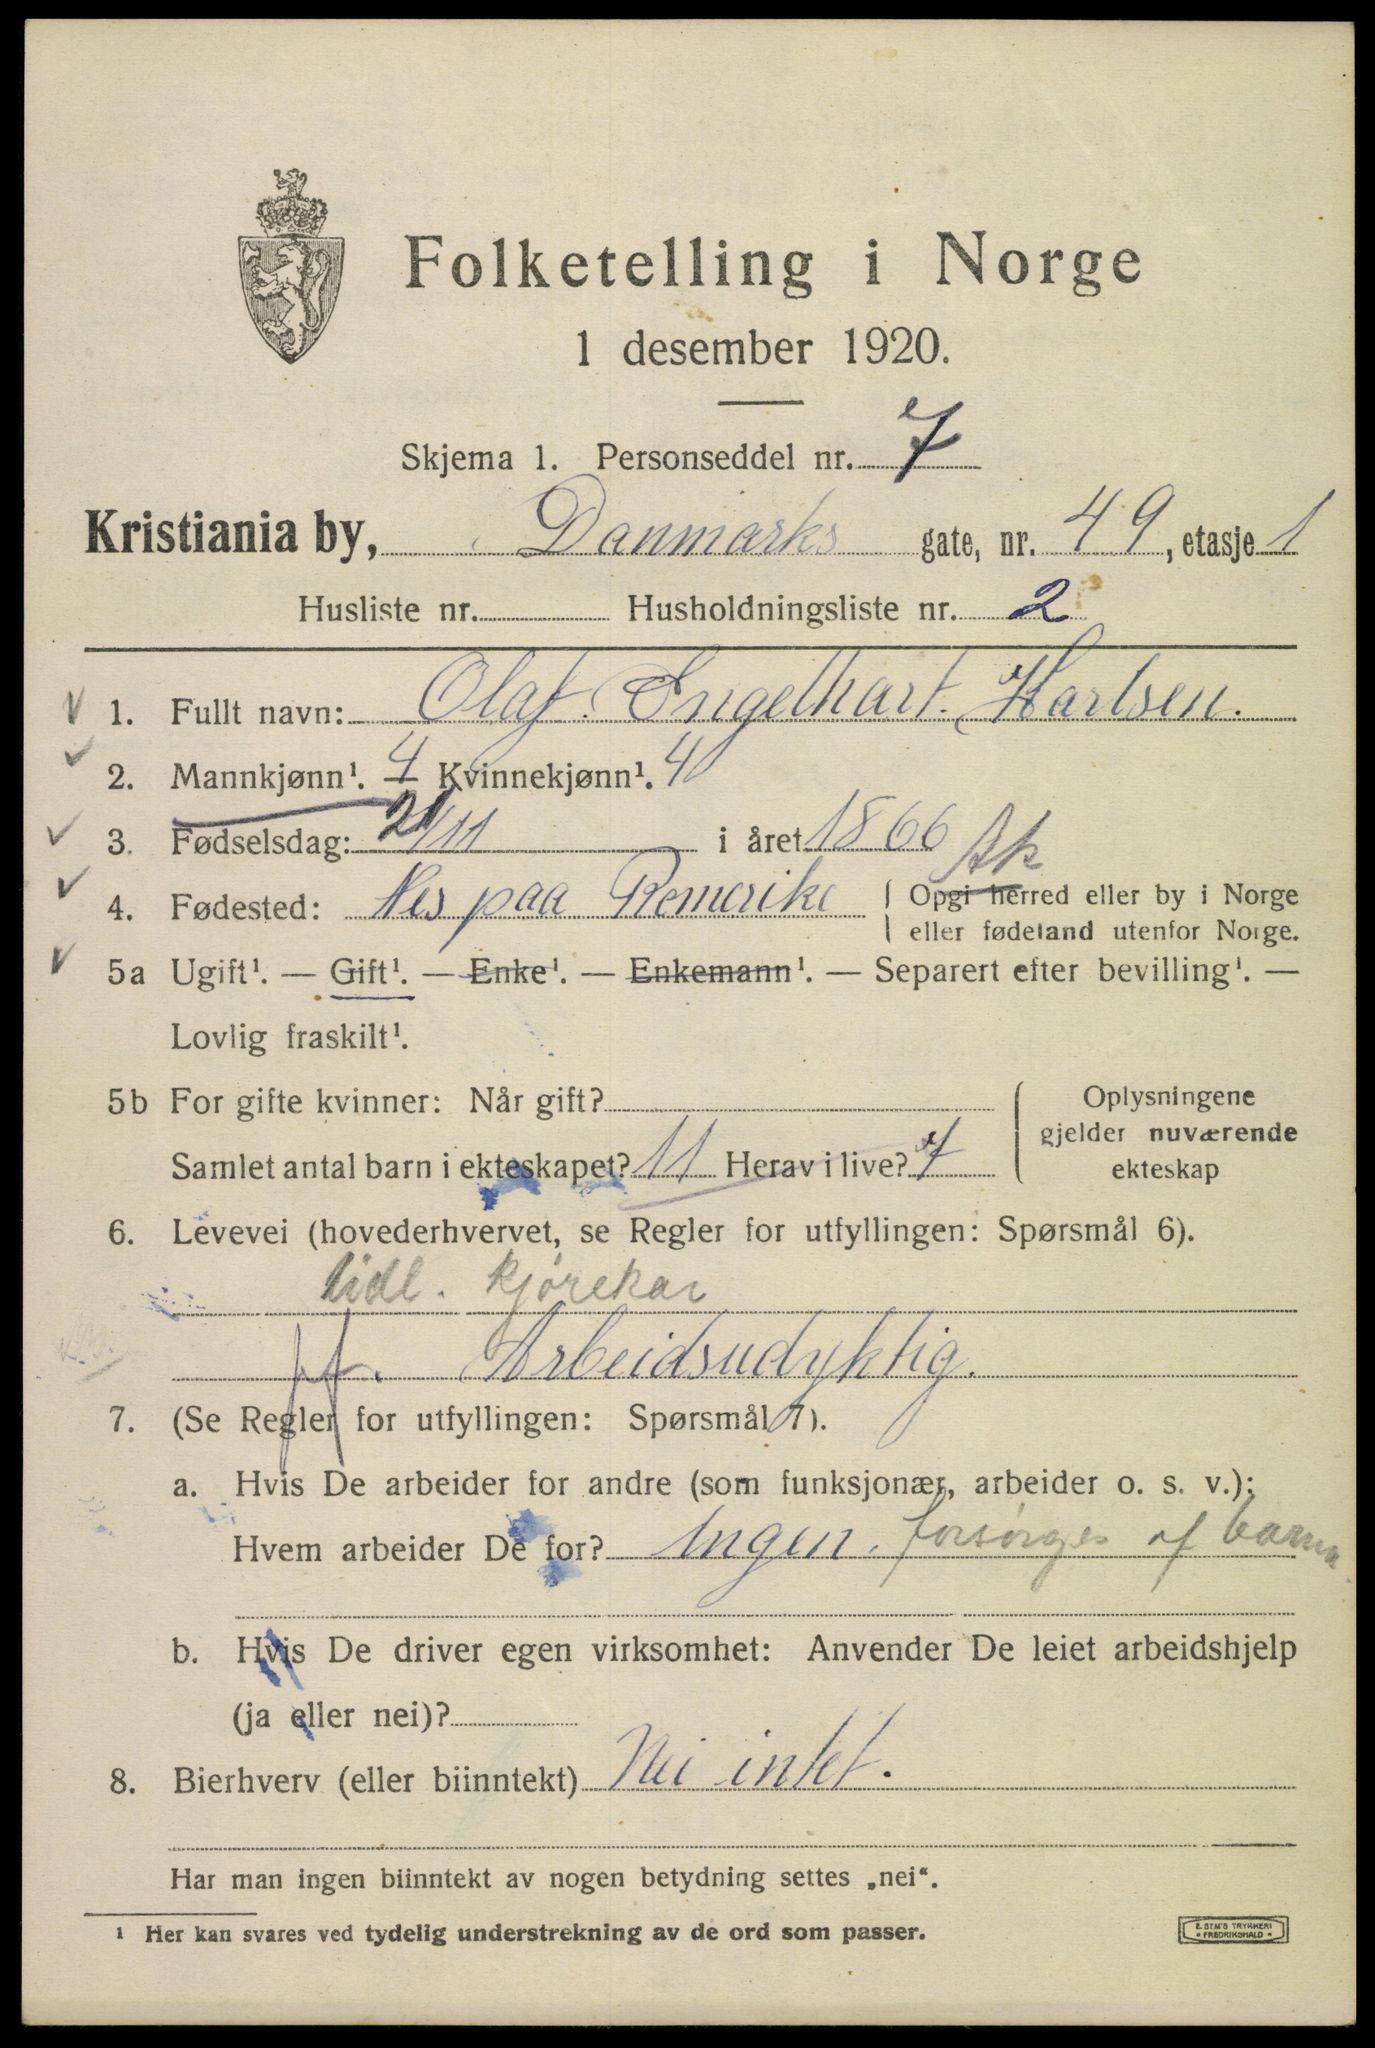 Folketelling i Norge
1 desember 1920.
Skjema 1. Personseddel nr. 7
Kristiania by, Danmarks gate, nr. 49, etasje 1
Husliste nr. Husholdningsliste nr. 2
1. Fullt navn: Olaf. Engelhart. Karlsen.
2. Mannkjønn¹. 4 — Kvinnekjønn¹. 4
3. Fødselsdag: 21/11 i året 1866 Ak
4. Fødested: Nes paa Romerike { Opgi herred eller by i Norge
eller fødeland utenfor Norge.
5a Ugift¹. — Gift¹. — Enke¹. — Enkemann¹. — Separert efter bevilling¹. —
Lovlig fraskilt¹.
5b For gifte kvinner: Når gift?
Samlet antal barn i ekteskapet? 11 Herav i live? 7
Oplysningene
gjelder nuværende
ekteskap
6. Levevei (hovederhvervet, se Regler for utfyllingen: Spørsmål 6).
tidl. kjørekar
Arbeidsudyktig.
7. (Se Regler for utfyllingen: Spørsmål 7).
a. Hvis De arbeider for andre (som funksjonær, arbeider o. s. v.):
Hvem arbeider De for? Ingen. forsørges af barna
b. Hvis De driver egen virksomhet: Anvender De leiet arbeidshjelp
(ja eller nei)?
8. Bierhverv (eller biinntekt) Nei intet.
Har man ingen biinntekt av nogen betydning settes „nei“.
¹ Her kan svares ved tydelig understrekning av de ord som passer.
E. SEM'S TRYKKERI
FREDRIKSHALD